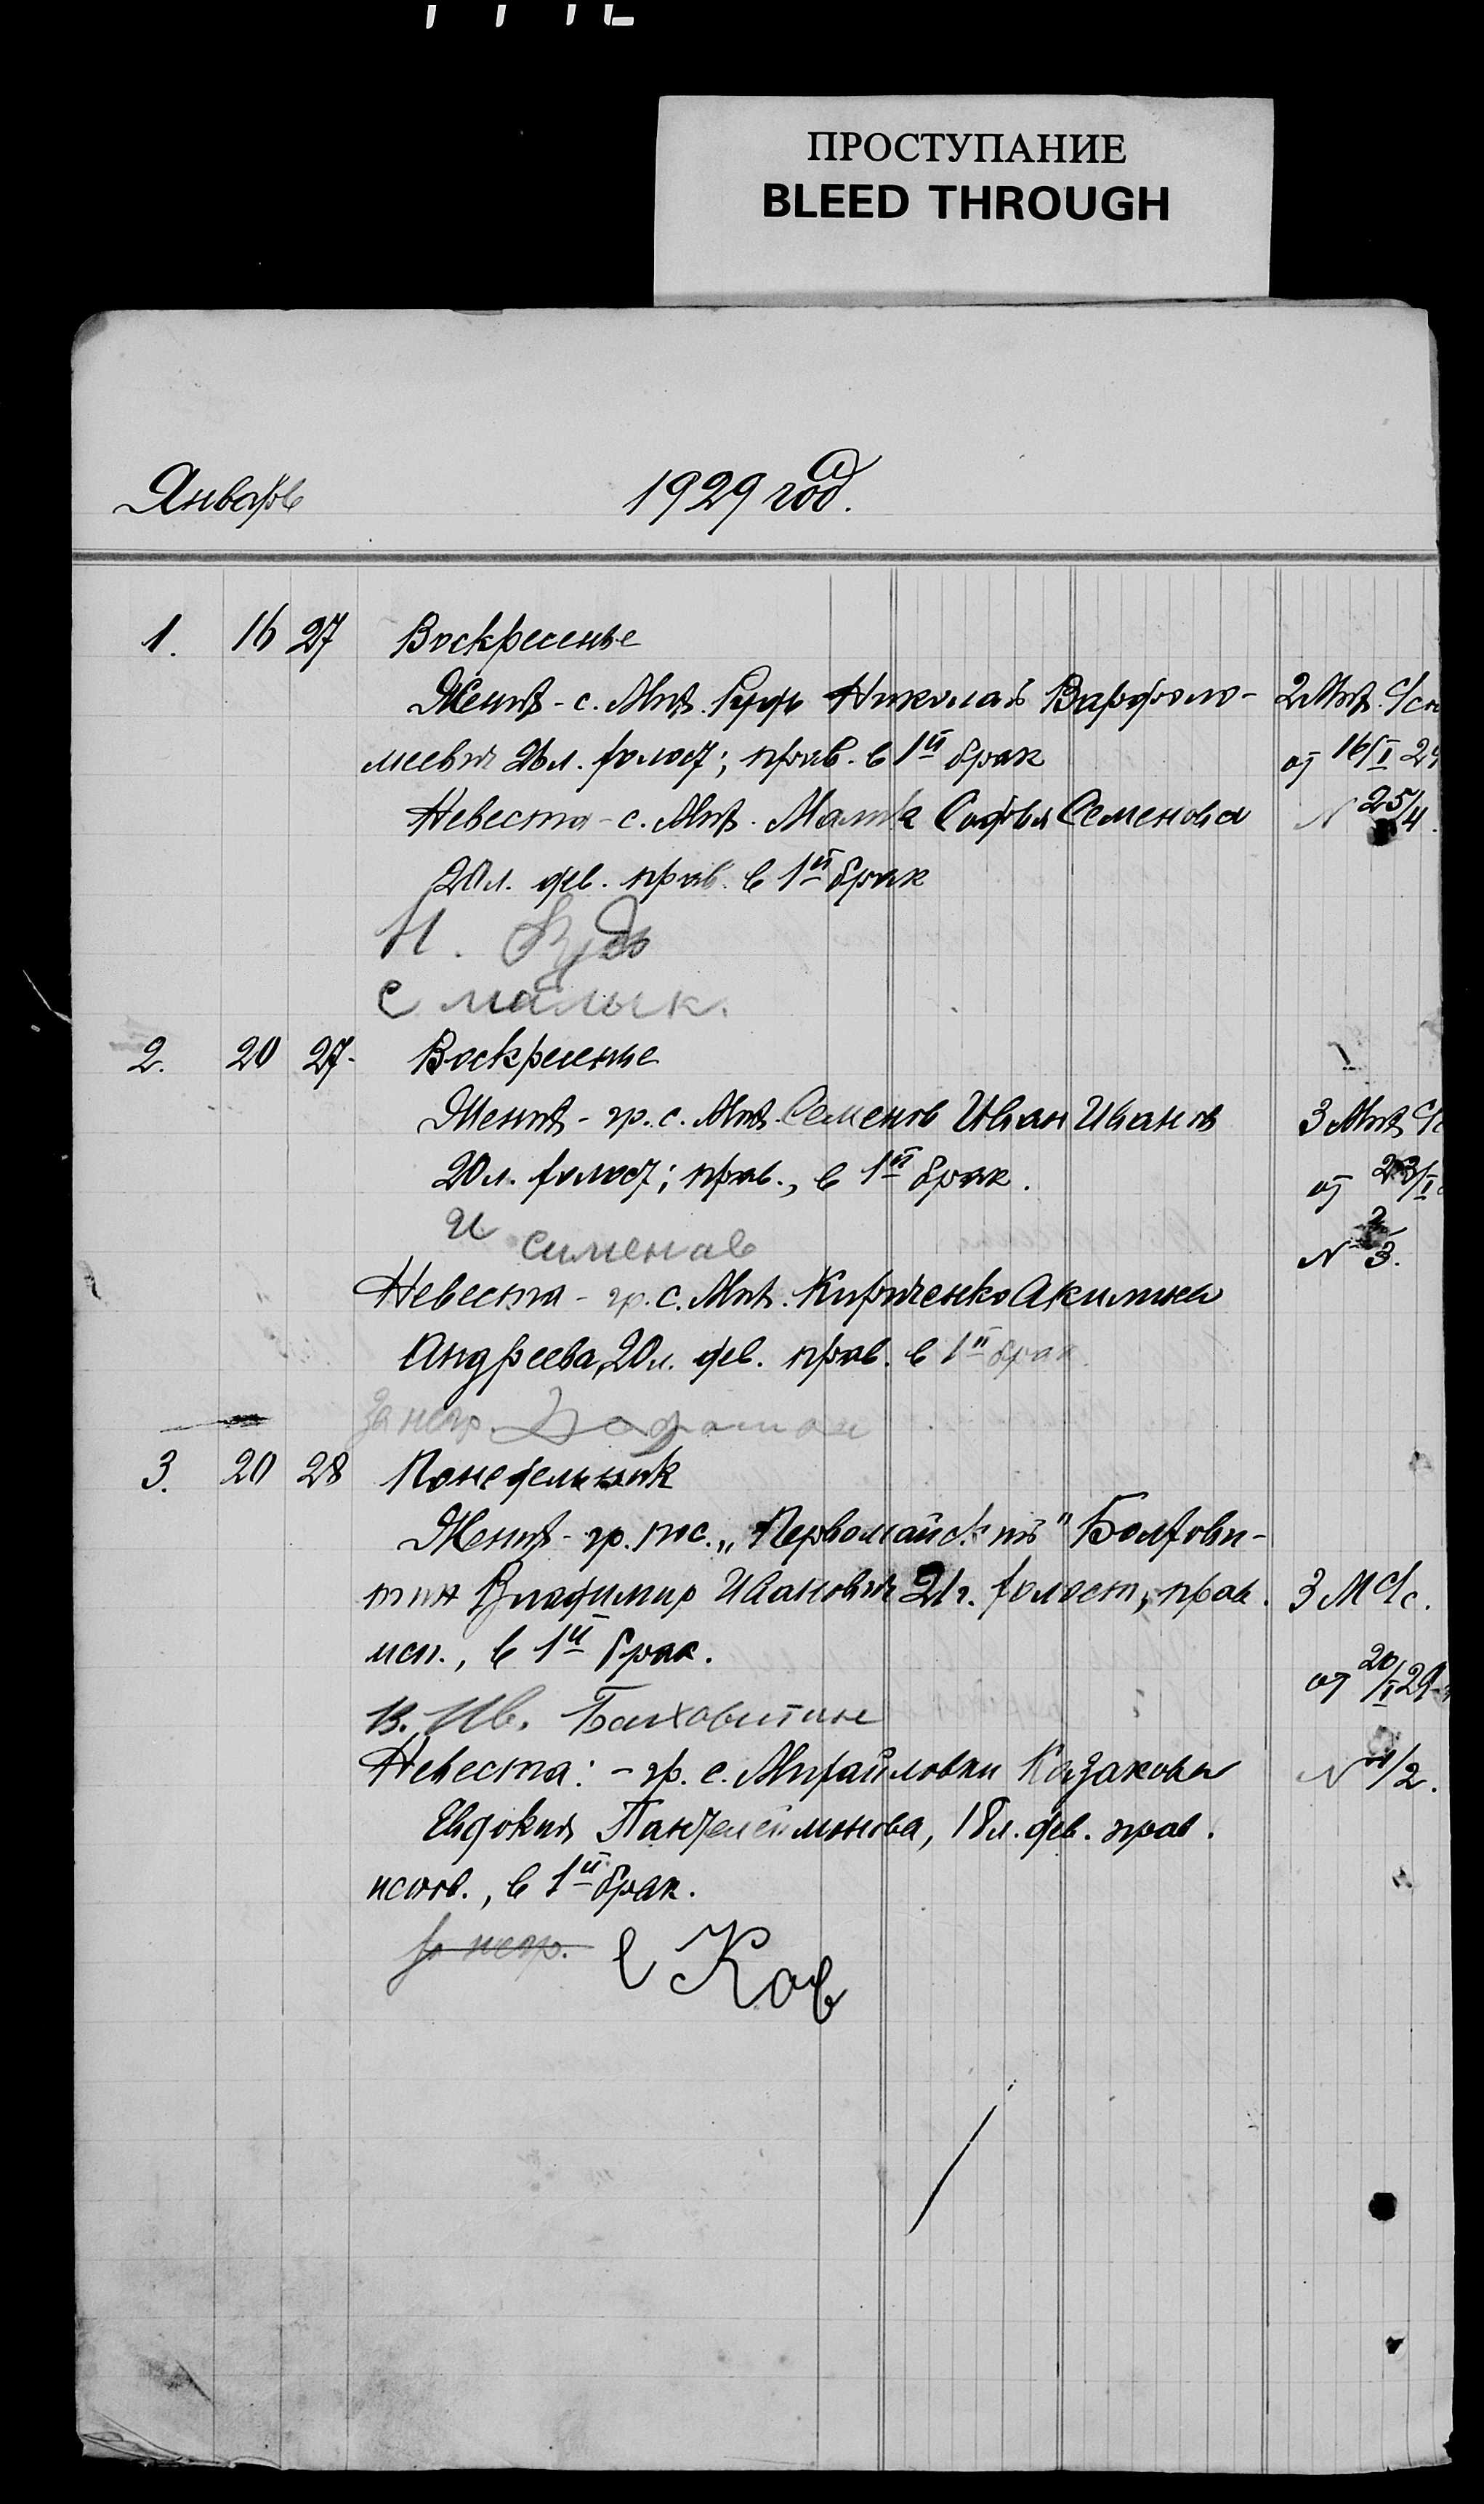 ПРОСТУПАНИЕ
BLEED THROUGH
Январь 1929 год.
1. 16 27 Воскресенье
Жених - с. Мих. Рудь Николай Варфоло-
2 Мих. С/с
меевич 26 л. холост; прав. в 1й брак
от 16/I 29
Невеста - с. Мих. Малик Софья Семенова
N 25/4.
20 л. дев. прав. в 1й брак
Н. Рудь
С малык.
2. 20 27. Воскресенье
Жених - гр. с. Мих. Семенов Иван Иванов
3 Мих. С/с
20 л. холост; прав., в 1й брак.
от 23/I
И сименав
N 2/3.
Невеста - гр. с. Мих. Кириченко Акилина
Андреева, 20 л. дев. прав. в 1й брак.
За негр.
3. 20 28 Понедельник
Жених - гр. пос. „Первомайск" Болхови-
тин Владимир Иванович 21 г. холост, прав.
3 М С/с.
исп., в 1й брак.
от 20/I 29
В. Ив. Балховитин
Невеста: - гр. с. Михайловки Казакова
N 1/2.
Евдокия Пантелеймонова, 18 л. дев. прав.
испов., в 1й брак.
За негр. Е Каз